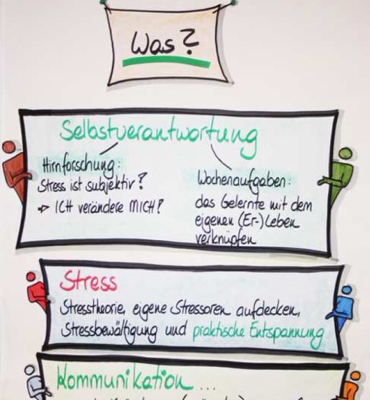 Was?
Selbstverantwortung
Hirnforschung:
Stress ist subjektiv?
→ ICH verändere MICH?
Wochenaufgaben:
das Gelernte mit dem
eigenen (Er-)Leben
verknüpfen
Stress
Stresstheorie, eigene Stressoren aufdecken,
Stressbewältigung und praktische Entspannung
Kommunikation...